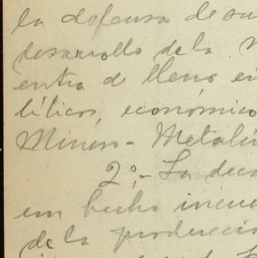 la defensa de su
desarrollo de la
entra de lleno en
líticos, económico
Minero-Metalú
2º.- La dec
un hecho
de la producció